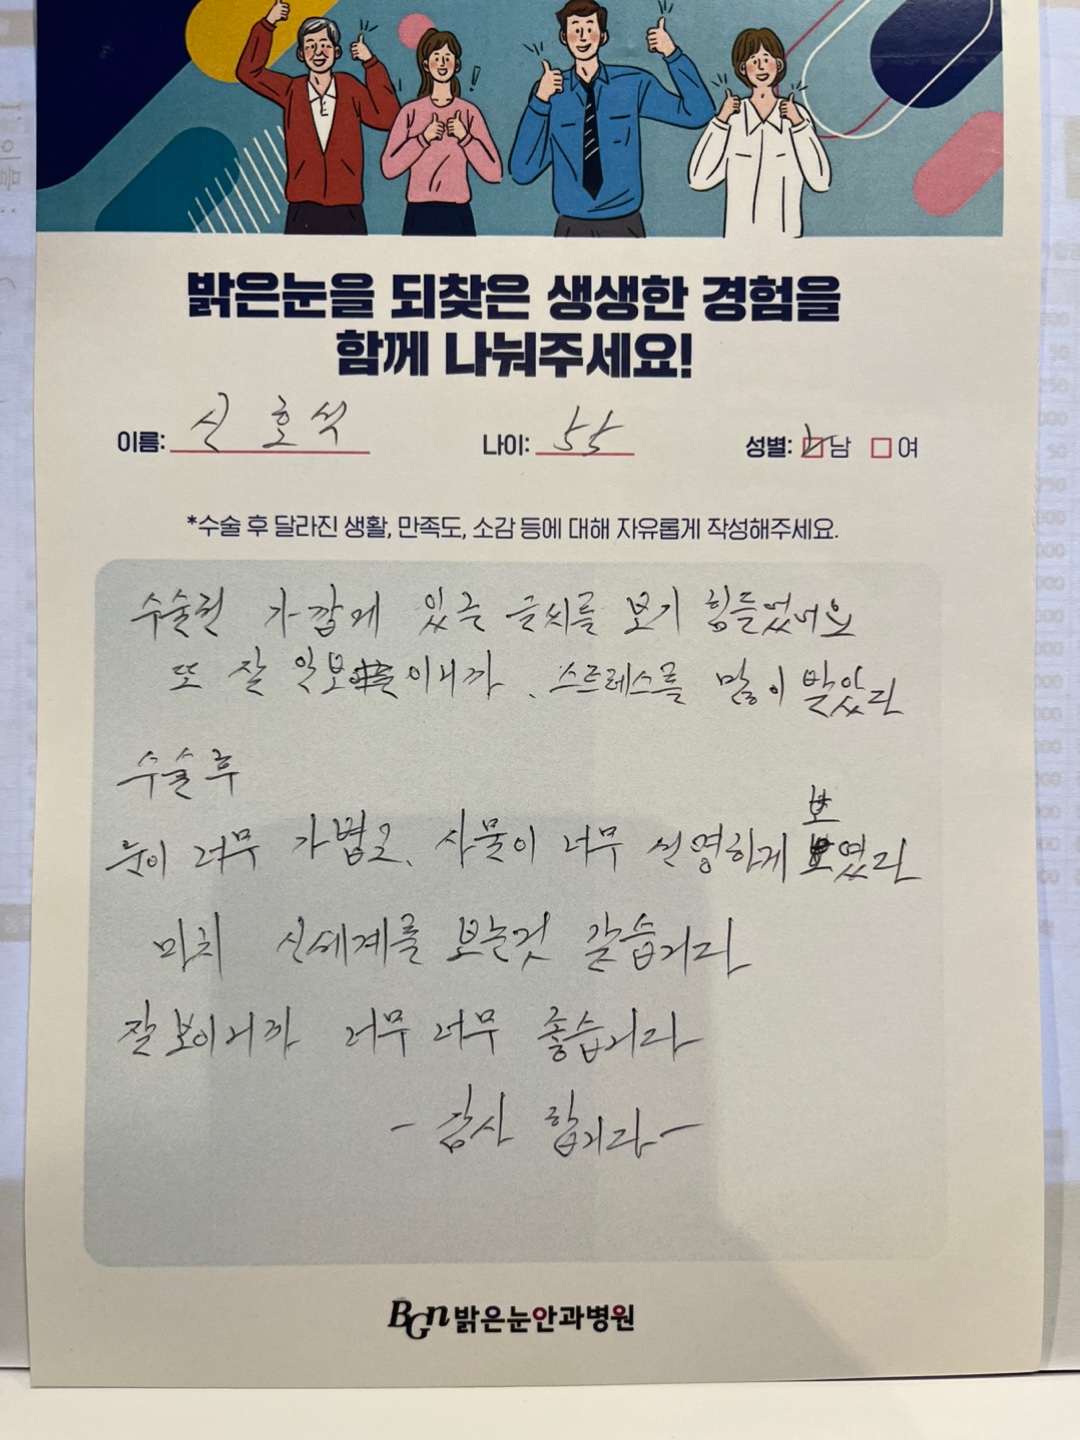 밝은눈을 되찾은 생생한 경험을
함께 나눠주세요!
이름: 신호석 나이: 55 성별: 남 여
*수술 후 달라진 생활, 만족도, 소감 등에 대해 자유롭게 작성해주세요.
수술전 가깝게 있는 글씨를 보기 힘들었어요
또 잘 안보이니까, 스트레스를 많이 받았다
수술후
눈이 너무 가볍고, 사물이 너무 선명하게 보였다
마치 신세계를 보는것 같습니다
잘 보이니까 너무 너무 좋습니다
- 감사 합니다 -
BGn 밝은눈안과병원